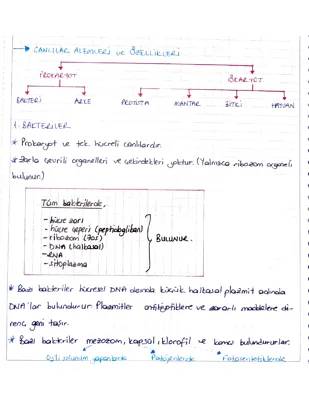 CANLILAR ALEMLERİ ve ÖZELLİKLERİ
PROKARYOT ÖKARYOT
BAKTERİ ARKE PROTİSTA MANTAR BİTKİ HAYVAN
1. BAKTERİLER
* Prokaryot ve tek hücreli canlılardır.
* Zarla çevrili organelleri ve çekirdekleri yoktur. (Yalnızca ribozom organeli
bulunur.)
Tüm bakterilerde,
- hücre zarı
- hücre çeperi (peptidoglikan)
- ribozom (70s)
- DNA (halkasal)
- RNA
- sitoplazma
BULUNUR.
* Bazı bakteriler hücresel DNA dışında küçük halkasal plazmit adında
DNA'lar bulundurur. Plazmitler antibiyotiklere ve zararlı maddelere di-
renç geni taşır.
* Bazı bakteriler mezozom, kapsül, klorofil ve kamçı bulundururlar.
O₂li solunum yapanlarda Patojenlerde Fotosentetiklerde